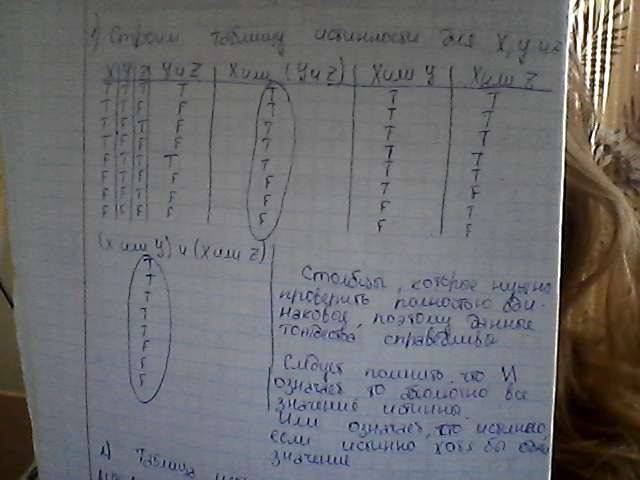 1) Строим таблицу истинности для X, y и z
X y z y и z X или (y и z) X или y X или z
T T T T T T T
T T F F T T T
T F T F T T T
T F F F T T T
F T T T T T T
F T F F F T F
F F T F F F T
F F F F F F F
(X или y) и (X или z)
T
T
T
T
T
F
F
F
Столбцы, которое нужно
проверить полностью оди-
наковые, поэтому данные
тождества справедливы
Следует помнить, что И
означает то все
значение истинны.
Или означает, что истинно
если истинно хотя бы одно
значение
Таблица